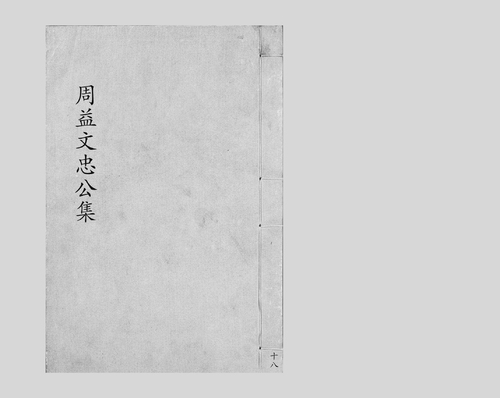 周益文忠公集
十八